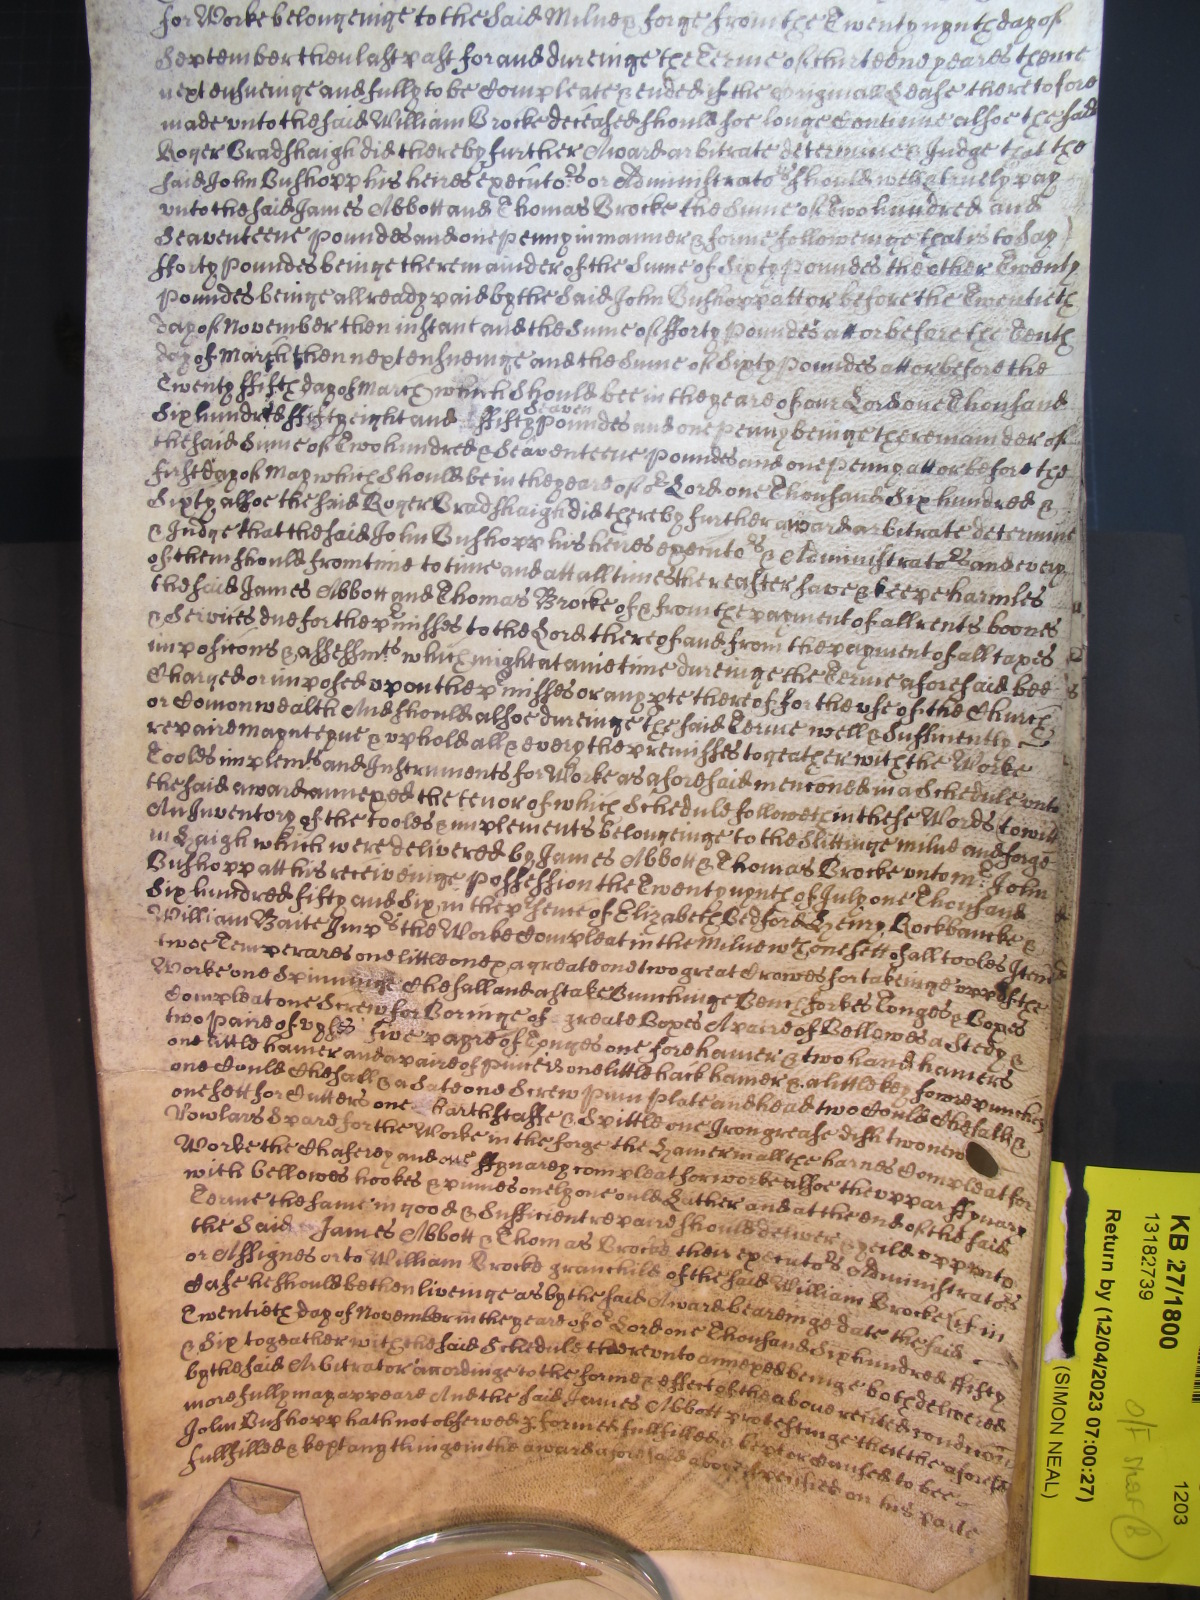 for Worke belongeinge to the said Milne & forge from the Twenty nynth day of
September then last past for and dureinge the Terme of thirteene yeares thence
next ensueinge and fully to be Compleate & ended if the originall Lease theretofore
made unto the said William Brocke deceased should soe longe Continue alsoe the said
Roger Bradshaigh did thereby further Award arbitrate determine & Judge that the
said John Bushopp his heires executors or Administrators should well & truely pay
unto the said James Abbott and Thomas Brocke the Sume of Two hundred and
Seaventeene Poundes and one penny in manner & forme followeinge that is to say
fforty Poundes beinge the remainder of the Sume of Sixty Poundes the other Twenty
Poundes beinge allready paid by the said John Bushopp att or before the Twentieth
day of November then instant and the Sume of fforty Poundes att or before the Tenth
day of March then next ensueinge and the Sume of Sixty Poundes att or before the
Twenty ffifth day of March which should bee in the yeare of our Lord one Thousand
Six hundred ffifty eight and ffifty Seaven Poundes and one penny beinge the remainder of
the said Sume of Two hundred & Seaventeene Poundes and one Penny att or before the
first day of May which should be in the yeare of or Lord one Thousand Six hundred &
Sixty alsoe the said Roger Bradshaigh did thereby further award arbitrate determine
& Judge that the said John Bushopp his heires executors & Administrators and every
of them should from time to time and att all times thereafter save & keepe harmles
the said James Abbott and Thomas Brocke of & from the payment of all rents boones
& Services due for the pmisses to the Lord thereof and from the payment of all taxes
impositons & assessmts which might at anie time dureinge the Terme aforesaid bee
Charged or imposed upon the pmisses or any pte thereof for the use of the Church
or Comonwealth And should alsoe dureinge the said Terme well & Sufficiently
repaire maynteyne & uphold all & every the premisses togeather with the Worke
Tooles implemts and Instruments for Worke as aforesaid mentoned in a Schedule unto
the said award annexed the tenor of which Schedule followeth in these Words to witt
An Inventory of the tooles & implements belongeinge to the Slittinge milne and forge
in Haigh which were delivered by James Abbott & Thomas Brocke unto mr John
Bushopp att his receiveinge Possession the Twenty nynth of July one Thousand
Six hundred fifty and Six in the psence of Elizabeth Bedford Henry Rockbancke &
William Baite Impris the Worke Compleat in the Milne wth one sett of all tooles Item
twoe Temperares one little one & a greate one two great Crowes for takeinge upp of the
Worke one Spinninge Chesall and a stake Bunchinge Bench forkes Tonges & Boxes
Compleat one Screw for Boringe of great Boxes A paire of Bellowes a Stedy &
two Paire of vyses five payre of Tonges one fore hamer & two hand hamers
one little hamer and a paire of Pincers one little hack hamer & a little key fowre punches
one Could Chesall & a Sate one Screw Pinn Plate and head two Could Chesalls &
one sett for Cutters one hearth staffe & Spittle one Iron grease dish two new
Rowlars Spard for the Worke in the forge the Hamer in all the harnes Compleat for
Worke the Chafery and one ffynarey compleat for worke alsoe the uppar ffynary
with bellowes hookes & pinnes onely one ould Luther and at the end of the said
Terme the same in good & Sufficient repaire should deliver & yeild upp unto
the said James Abbott & Thomas Brocke their executors Administrators
or Assignes or to William Brocke granchild of the said William Brocke if in
Case he should be then liveinge as by the said Award beareinge date the said
Twentieth day of November in the yeare of or Lord one Thousand Six hundred ffifty
& Six togeather with the said Schedule thereunto annexed beinge both delivered
by the said Arbitrator accordinge to the forme & effect of the above recited conditon
more fully may appeare And the said James Abbott protestinge that the aforesd
John Bushopp hath not observed pformed fullfilled & kept or Caused to bee
fullfilled & kept any thinge in the award aforesaid above specified on his parte
KB 27/1800
13182739
1203
Return by (12/04/2023 07:00:27)
(SIMON NEAL)